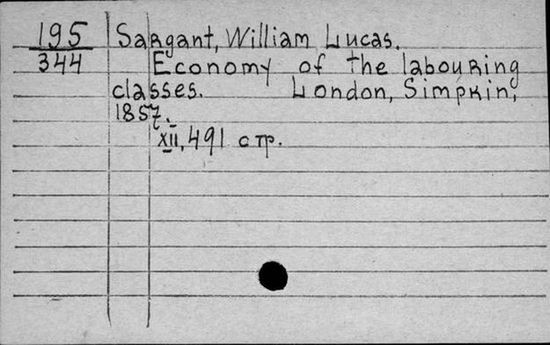 195 Sargant, William Lucas.
344 Economy of the labouring
classes. London, Simpkin,
1857.
XII, 491 стр.